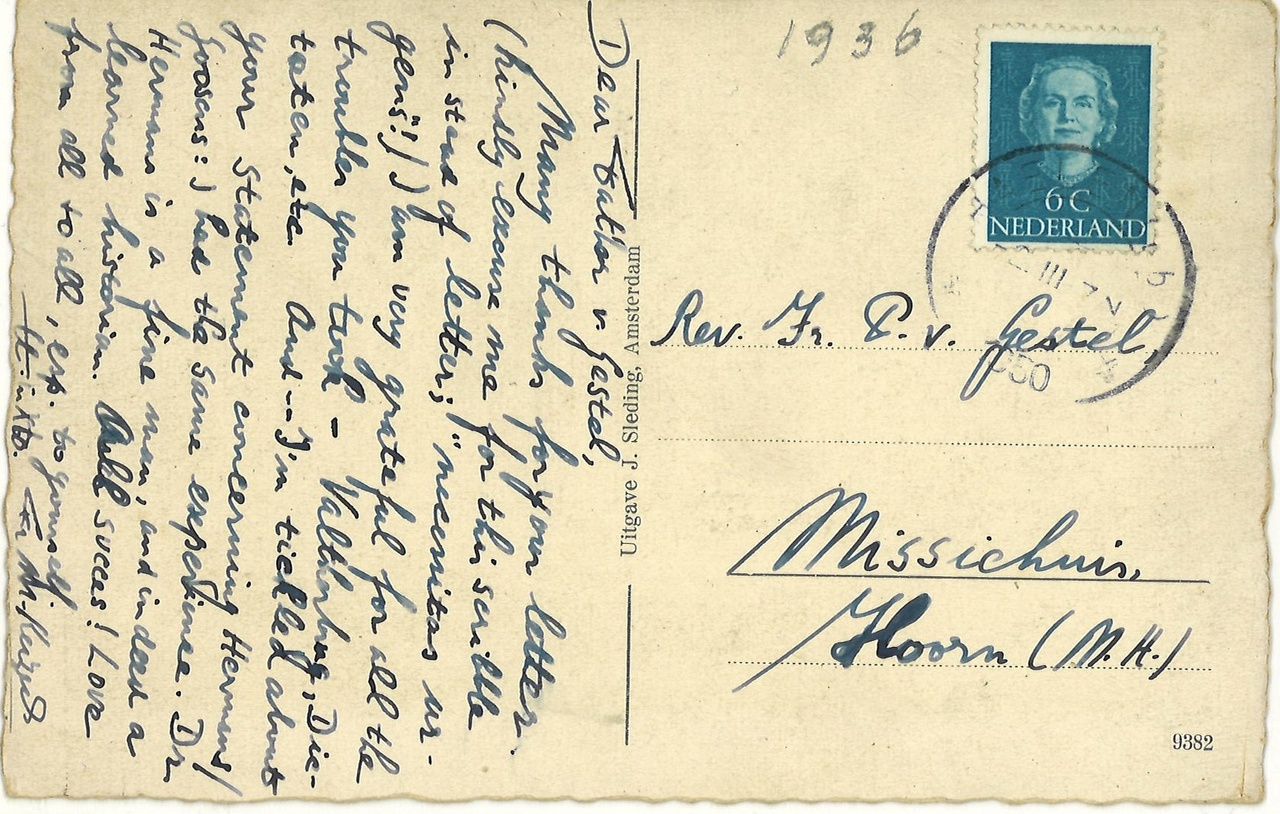 1936
6 C
NEDERLAND
III
950
Dear Father v. Gestel,
Many thanks for your letter.
(kindly excuse me for this scribble
in stead of letter; "necessitas ur-
gens"!) I am very grateful for all the
trouble you took – Valthrhug, Die-
taten, etc. And -- I'm tickled about
your statement concerning Hermus/
Goosens: I had the same experience. Dr.
Hermus is a fine man, and indeed a
learned historian. All succes! Love
from all to all, esp. to yourself
Fr.
Uitgave J. Sleding, Amsterdam
Rev. Fr. P. v. Gestel,
Missiehuis,
Hoorn (N.H.)
9382